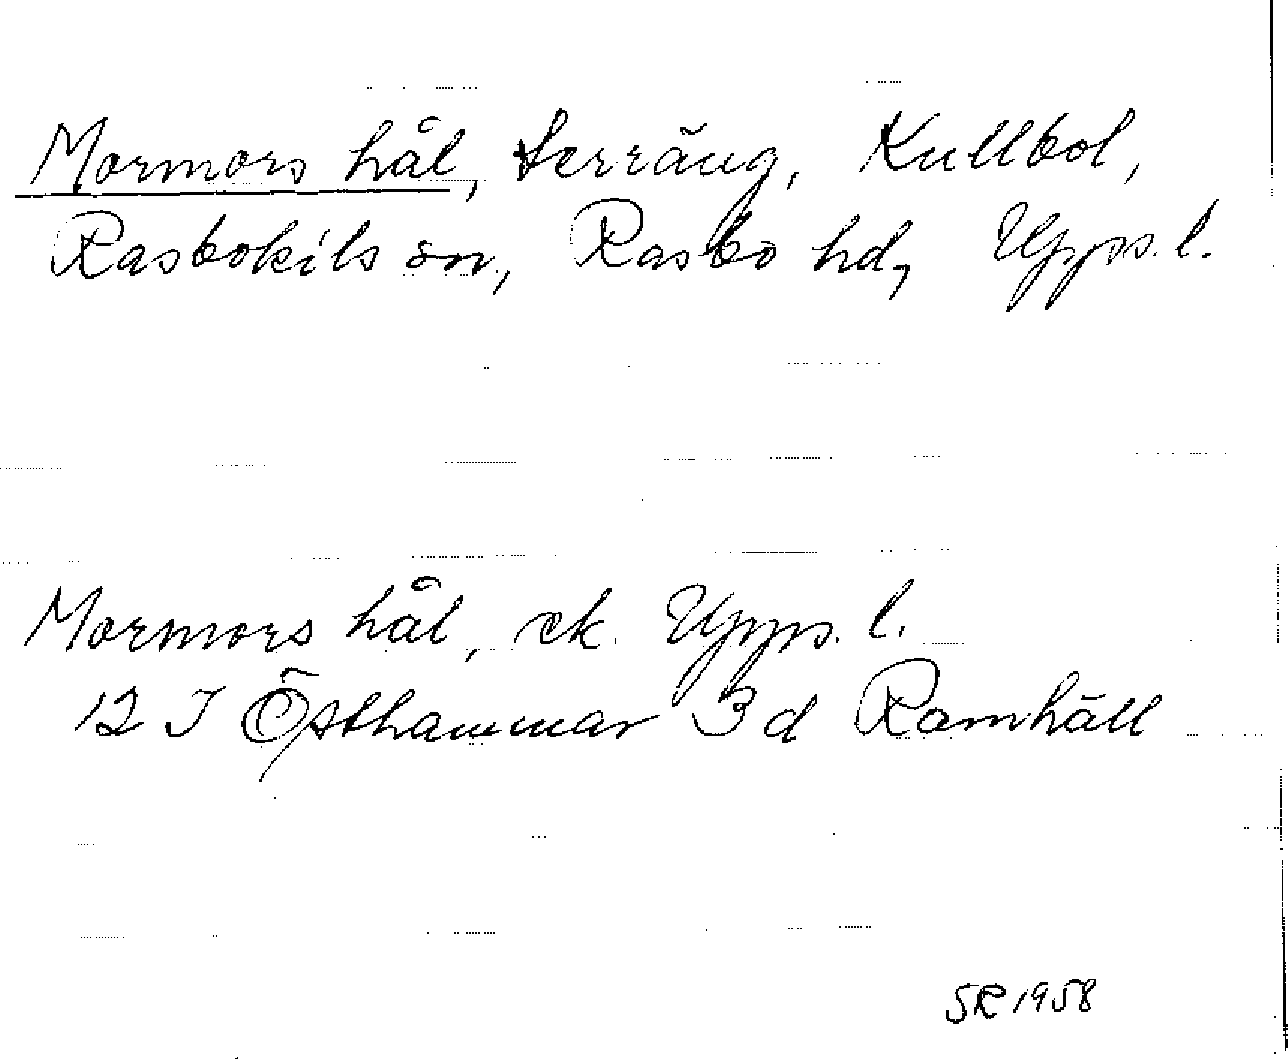 Mormors hål, terräng, Kullbol,
Rasbokils sn, Rasbo hd, Upps. l.
Mormors hål, ek. Upps. l.
12 I Östhammar 3 d Ramhäll
SR 1958